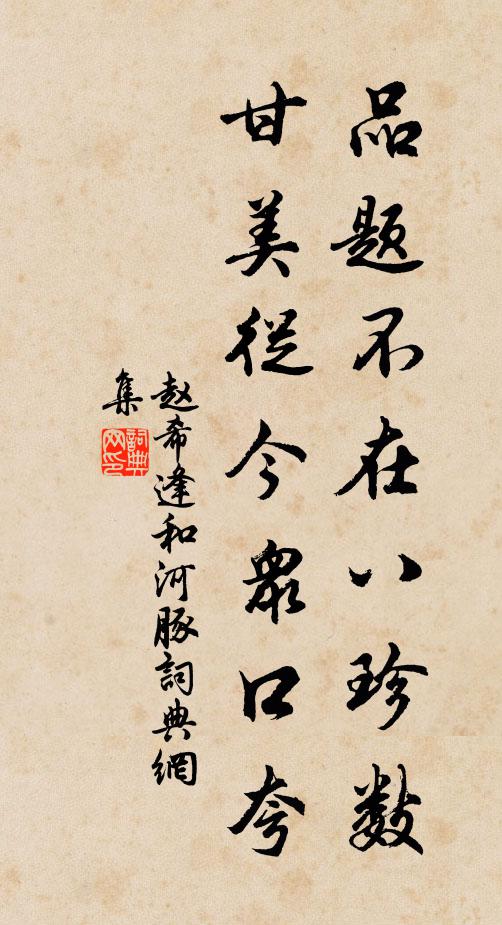 品题不在八珍数
甘美從今衆口夸
赵希逢和河豚詞典網
集
詞典
网印